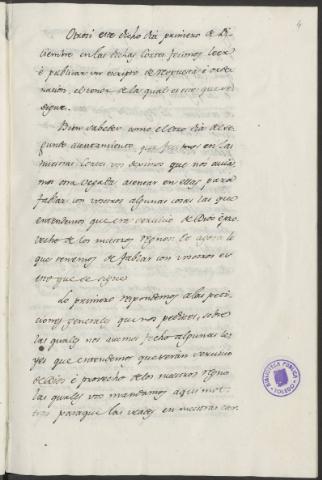 4
Otrosi este dicho dia primero de Di-
ciembre en las dichas Cortes fecimos leer
è publicar un escripto de respuesta è orde-
nacion el tenor de la qual es este que se
sigue.
Bien sabedes como el otro dia al se-
gundo ayuntamiento que fecimos en las
nuestras Cortes vos deximos que nos avia-
mos otra vegada asentar en ellas para
fablar con vosotros algunas cosas las que
entendemos que era servicio de Dios è pro-
vecho de los nuestros regnos Et agora lo
que tenemos de fablar con vosotros es
esto que se sigue
Lo primero respondemos a las peti-
ciones generales que nos pedistes, sobre
las quales nos avemos fecho algunas le-
yes que entendemos que seran servicio
de Dios è provecho de los nuestros regnos
las quales vos mandamos aqui mos-
trar para que las veades en nuestras Cor-
BIBLIOTECA PUBLICA
TOLEDO